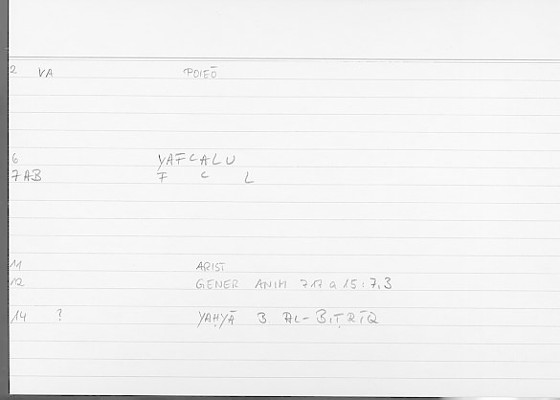 2 VA POIEŌ
6 YAFCALU
7AB F C L
11 ARIST
12 GENER ANIM 717 a 15 : 7,3
14 ? YAḤYĀ B AL-BIṬRĪQ